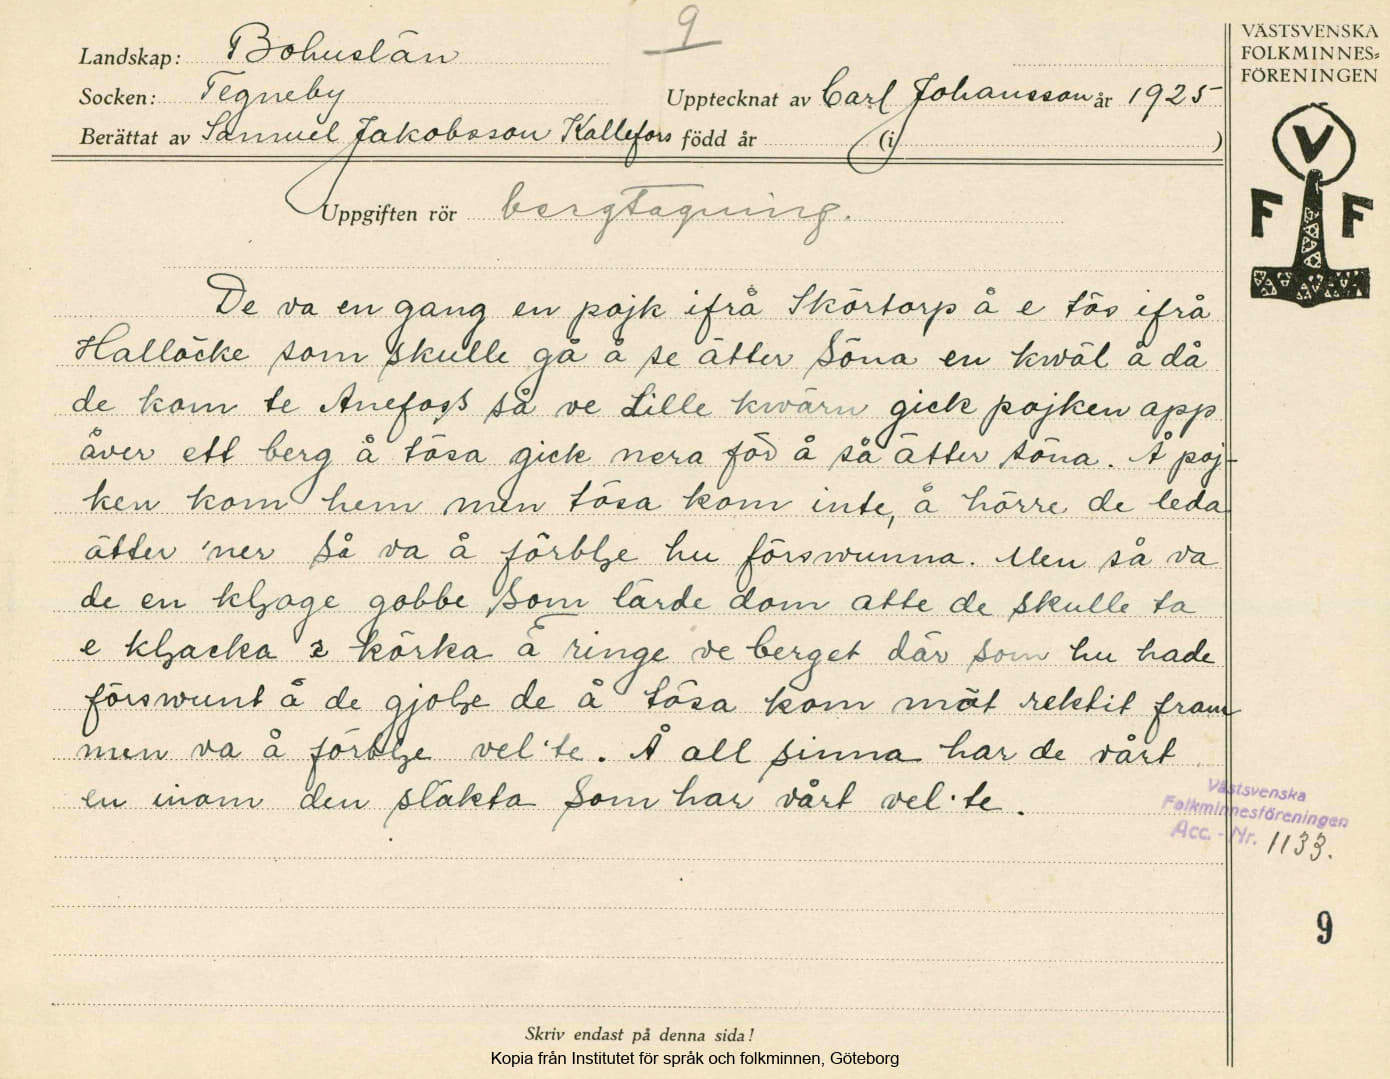 9
VÄSTSVENSKA
FOLKMINNES=
FÖRENINGEN
Landskap: Bohuslän
Socken: Tegneby
Upptecknat av Carl Johansson år 1925
Berättat av Samuel Jakobsson Kallefors född år (i )
V
F F
Uppgiften rör bergtagning.
De va en gang en pojk ifrå Skörtorp å e tös ifrå
Hallöcke som skulle gå å se ätter söna en kwäl å då
de kom te Anefoss så ve Lille kwärn gick pojken app
åver ett berg å tösa gick nera för å så ätter söna. Å poj-
ken kom hem men tösa kom inte, å hörre de leda
ätter 'ner så va å förblze hu förswunna. Men så va
de en klzoge gobbe som lärde dom atte de skulle ta
e klzacka i körka å ringe ve berget där som hu hade
förswunt å de gjolze de å tösa kom möt rektit fram
men va å förblze vel·te. Å all sinna har de vårt
en inom den släkta som har vårt vel·te.
Västsvenska
Folkminnesföreningen
Acc. - Nr. 1133.
9
Skriv endast på denna sida!
Kopia från Institutet för språk och folkminnen, Göteborg